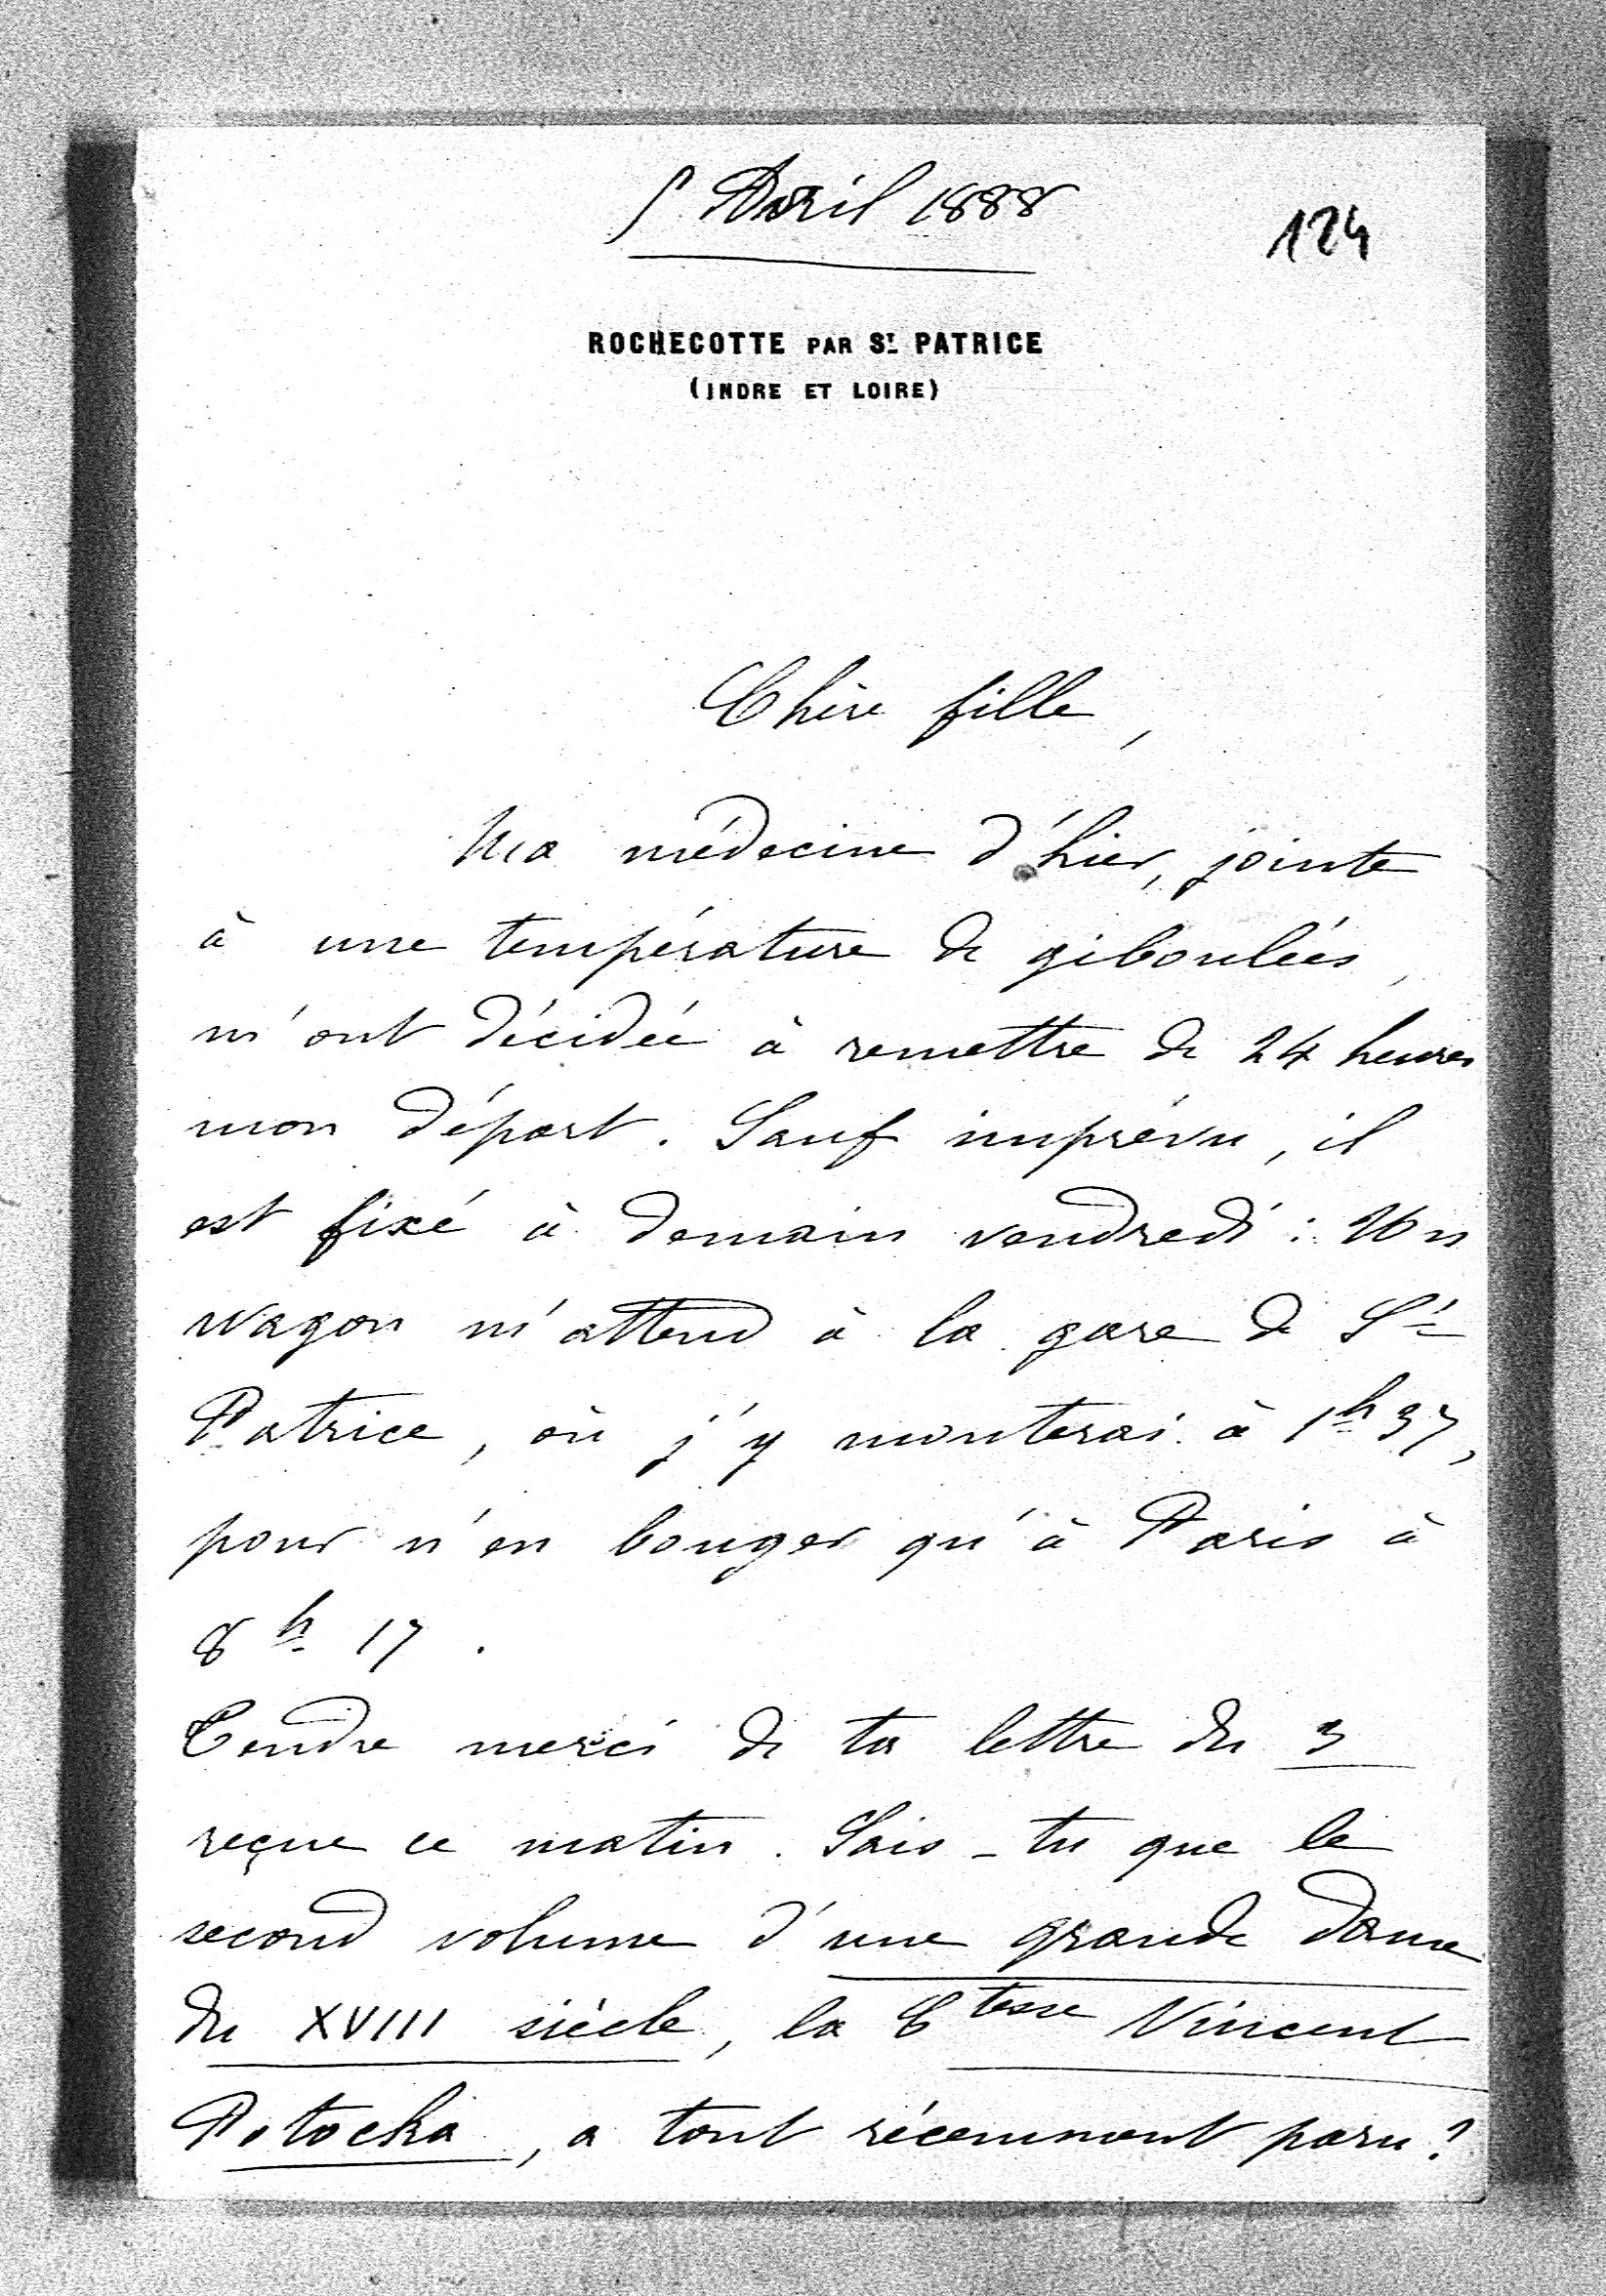 5 Avril 1888
124
ROCHECOTTE PAR ST PATRICE
(INDRE ET LOIRE)
Chère fille,
Ma médecine d'hier, jointe
à une température de giboulées,
m'ont décidée à remettre de 24 heures
mon départ. Sauf imprévu, il
est fixé à demain vendredi : Un
wagon m'attend à la gare de St
Patrice, où j'y monterai à 1h 37,
pour n'en bouger qu'à Paris à
8h 17.
Tendre merci de ta lettre du 3
reçue ce matin. Sais-tu que le
second volume d'une grande dame
du XVIII siècle, la Ctesse Vincent
Potocka, a tout récemment paru?